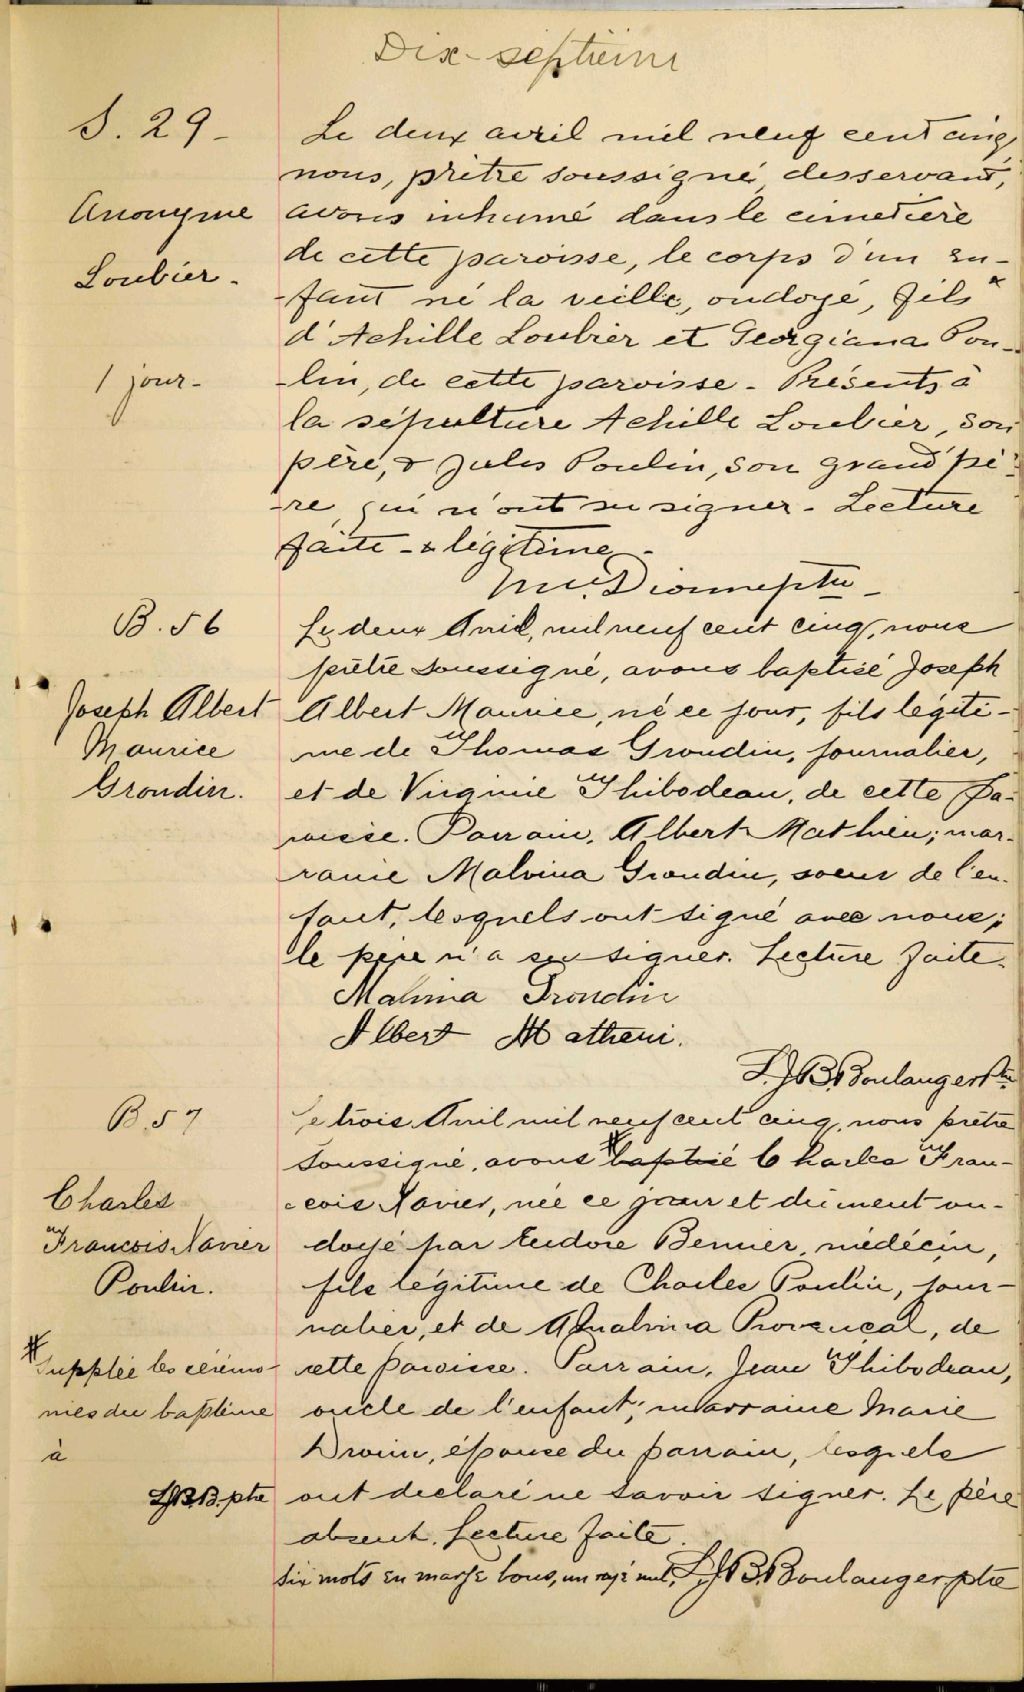 Dix-septième
S. 29 -
Anonyme
Loubier -
1 jour -
Le deux avril mil neuf cent cinq,
nous, prêtre soussigné, desservant,
avons inhumé dans le cimetière
de cette paroisse, le corps d'un en-
-fant né la veille, ondoyé, fils x
d'Achille Loubier et Georgiana Pou-
-lin, de cette paroisse - Présents à
la sépulture Achille Loubier, son
père, & Jules Poulin, son grand'pè-
-re, qui n'ont su signer - Lecture
faite - x légitime -
Dionne ptre -
B. 56
Joseph Albert
Maurice
Grondin.
Le deux Avril, mil neuf cent cinq, nous
prêtre soussigné, avons baptisé Joseph
Albert Maurice, né ce jour, fils légiti-
me de Thomas Grondin, journalier,
et de Virginie Thibodeau, de cette pa-
roisse. Parrain, Albert Mathieu; mar-
raine Malvina Grondin, soeur de l'en-
fant, lesquels ont signé avec nous;
le père n'a su signer. Lecture faite.
Malvina Grondin
Albert Matheiu.
L.J.B. Boulanger Ptre
B. 57
Charles
François Xavier
Poulin.
# Supplée les cérémo-
nies du baptême
à
LJBB. ptre
Le trois Avril mil neuf cent cinq, nous prêtre
soussigné, avons # baptisé Charles Fran-
çois Xavier, née ce jour et dûment on-
doyé par Eudore Bernier, médécin,
fils légitime de Charles Poulin, jour-
nalier, et de Amalvina Provençal, de
cette paroisse. Parrain, Jean Thibodeau,
oncle de l'enfant; marraine Marie
Drouin, épouse du parrain, lesquels
ont declaré ne savoir signer. Le père
absent. Lecture faite.
Six mots en marge bons, un rayé nul, L.J.B. Boulanger, ptre